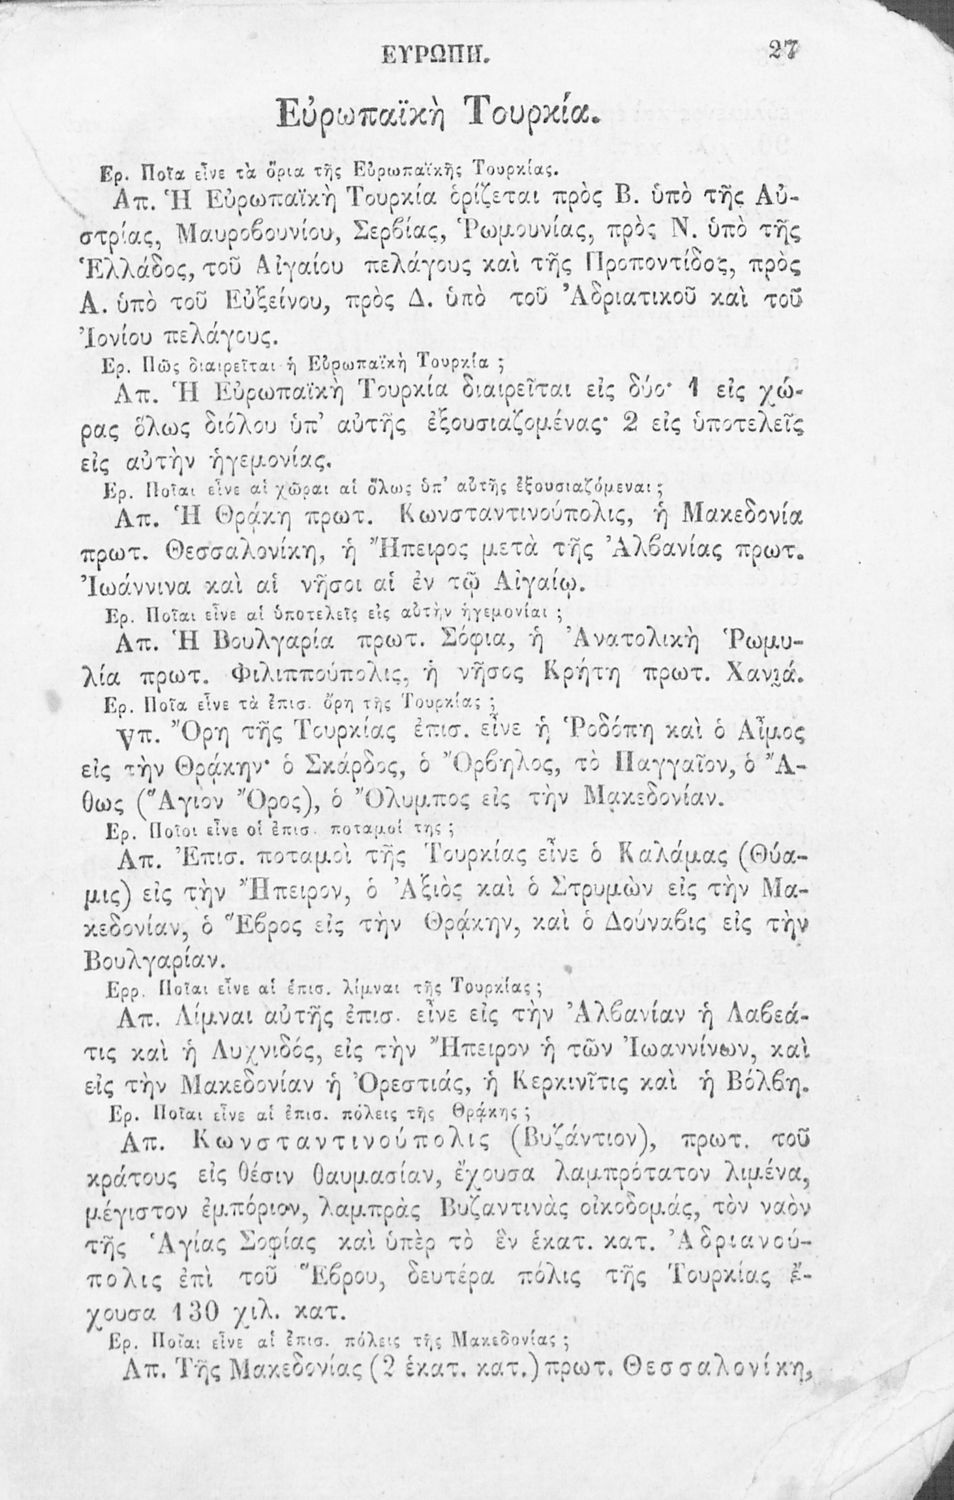 ΕΥΡΩΠΗ. 27
Εὐρωπαϊκὴ Τουρκία.
Ερ. Ποῖα εἶνε τὰ ὅρια τῆς Εὐρωπαϊκῆς Τουρκίας.
Απ. Ἡ Εὐρωπαϊκὴ Τουρκία ὁρίζεται πρὸς Β. ὑπὸ τῆς Αὐ-
στρίας, Μαυροβουνίου, Σερβίας, Ῥωμουνίας, πρὸς Ν. ὑπὸ τῆς
Ἑλλάδος, τοῦ Αἰγαίου πελάγους καὶ τῆς Προποντίδος, πρὸς
Α. ὑπὸ τοῦ Εὐξείνου, πρὸς Δ. ὑπὸ τοῦ Ἀδριατικοῦ καὶ τοῦ
Ἰονίου πελάγους.
Ερ. Πῶς διαιρεῖται ἡ Εὐρωπαϊκὴ Τουρκία ;
Απ. Ἡ Εὐρωπαϊκὴ Τουρκία διαιρεῖται εἰς δύο· 1 εἰς χώ-
ρας ὅλως διόλου ὑπ' αὐτῆς ἐξουσιαζομένας· 2 εἰς ὑποτελεῖς
εἰς αὐτὴν ἡγεμονίας.
Ερ. Ποῖαι εἶνε αἱ χῶραι αἱ ὅλως ὑπ' αὐτῆς ἐξουσιαζόμεναι ;
Απ. Ἡ Θρᾴκη πρωτ. Κωνσταντινούπολις, ἡ Μακεδονία
πρωτ. Θεσσαλονίκη, ἡ Ἤπειρος μετὰ τῆς Ἀλβανίας πρωτ.
Ἰωάννινα καὶ αἱ νῆσοι αἱ ἐν τῷ Αἰγαίῳ.
Ερ. Ποῖαι εἶνε αἱ ὑποτελεῖς εἰς αὐτὴν ἡγεμονίαι ;
Απ. Ἡ Βουλγαρία πρωτ. Σόφια, ἡ Ἀνατολικὴ Ῥωμυ-
λία πρωτ. Φιλιππούπολις, ἡ νῆσος Κρήτη πρωτ. Χανιά.
Ερ. Ποῖα εἶνε τὰ ἐπισ. ὄρη τῆς Τουρκίας ;
γπ. Ὄρη τῆς Τουρκίας ἐπισ. εἶνε ἡ Ῥοδόπη καὶ ὁ Αἷμος
εἰς τὴν Θρᾴκην· ὁ Σκάρδος, ὁ Ὄρβηλος, τὸ Παγγαῖον, ὁ Ἄ-
θως (Ἅγιον Ὄρος), ὁ Ὄλυμπος εἰς τὴν Μακεδονίαν.
Ερ. Ποῖοι εἶνε οἱ ἐπισ. ποταμοί της ;
Απ. Ἐπισ. ποταμοὶ τῆς Τουρκίας εἶνε ὁ Καλάμας (Θύα-
μις) εἰς τὴν Ἤπειρον, ὁ Ἀξιὸς καὶ ὁ Στρυμὼν εἰς τὴν Μα-
κεδονίαν, ὁ Ἕβρος εἰς τὴν Θρᾴκην, καὶ ὁ Δούναβις εἰς τὴν
Βουλγαρίαν.
Ερρ. Ποῖαι εἶνε αἱ ἐπισ. λίμναι τῆς Τουρκίας ;
Απ. Λίμναι αὐτῆς ἐπισ. εἶνε εἰς τὴν Ἀλβανίαν ἡ Λαβεά-
τις καὶ ἡ Λυχνιδός, εἰς τὴν Ἤπειρον ἡ τῶν Ἰωαννίνων, καὶ
εἰς τὴν Μακεδονίαν ἡ Ὀρεστιάς, ἡ Κερκινῖτις καὶ ἡ Βόλβη.
Ερ. Ποῖαι εἶνε αἱ ἐπισ. πόλεις τῆς Θρᾴκης ;
Απ. Κωνσταντινούπολις (Βυζάντιον), πρωτ. τοῦ
κράτους εἰς θέσιν θαυμασίαν, ἔχουσα λαμπρότατον λιμένα,
μέγιστον ἐμπόριον, λαμπρὰς Βυζαντινὰς οἰκοδομάς, τὸν ναὸν
τῆς Ἁγίας Σοφίας καὶ ὑπὲρ τὸ ἓν ἑκατ. κατ. Ἀδριανού-
πολις ἐπὶ τοῦ Ἕβρου, δευτέρα πόλις τῆς Τουρκίας ἔ-
χουσα 130 χιλ. κατ.
Ερ. Ποῖαι εἶνε αἱ ἐπισ. πόλεις τῆς Μακεδονίας ;
Απ. Τῆς Μακεδονίας (2 ἑκατ. κατ.) πρωτ. Θεσσαλονίκη,